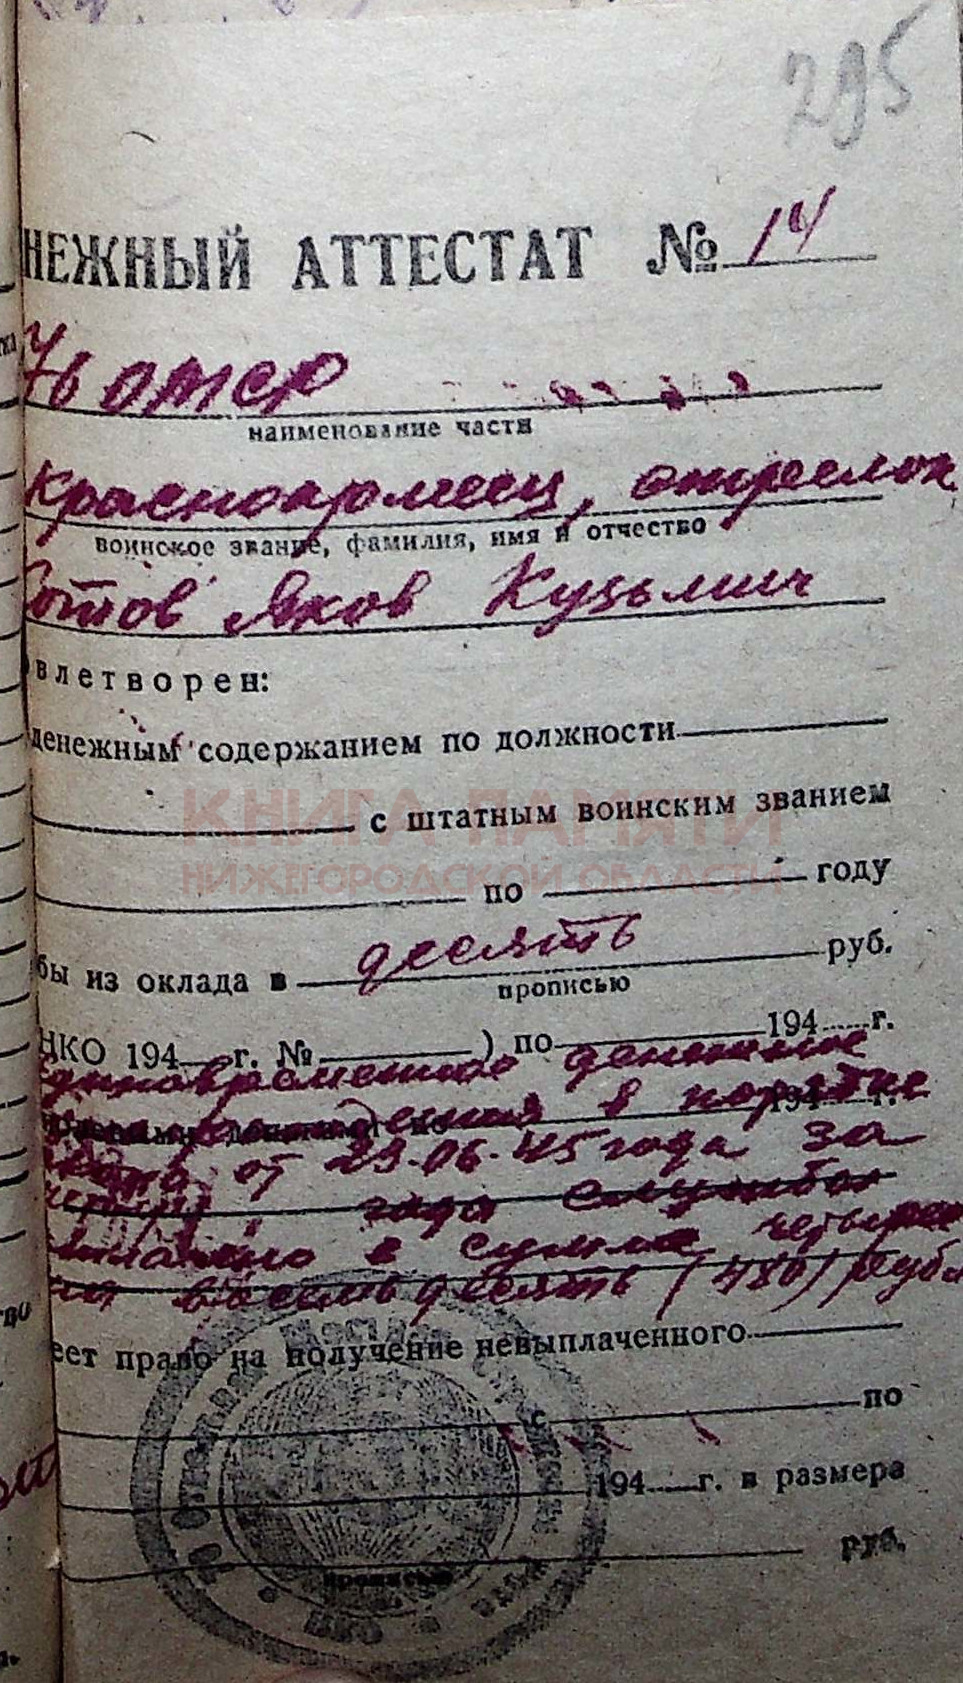 295
НЕЖНЫЙ АТТЕСТАТ № 14
76 отср
наименование части
красноармеец, стрелок
воинское звание, фамилия, имя и отчество
отов Яков Кузьмич
влетворен:
денежным содержанием по должности
с штатным воинским званием
КНИГА ПАМЯТИ
НИЖЕГОРОДСКОЙ ОБЛАСТИ
по году
бы из оклада в десять руб.
прописью
НКО 194 г. № ) по 194 г.
Единовременное денежное
в порядке
194 г.
от 23.06.45 года за
года службы
в сумме четырес
восемьдесят (480) рубл
еет право на получение невыплаченного
с по
194 г. в размера
руб.
прописью